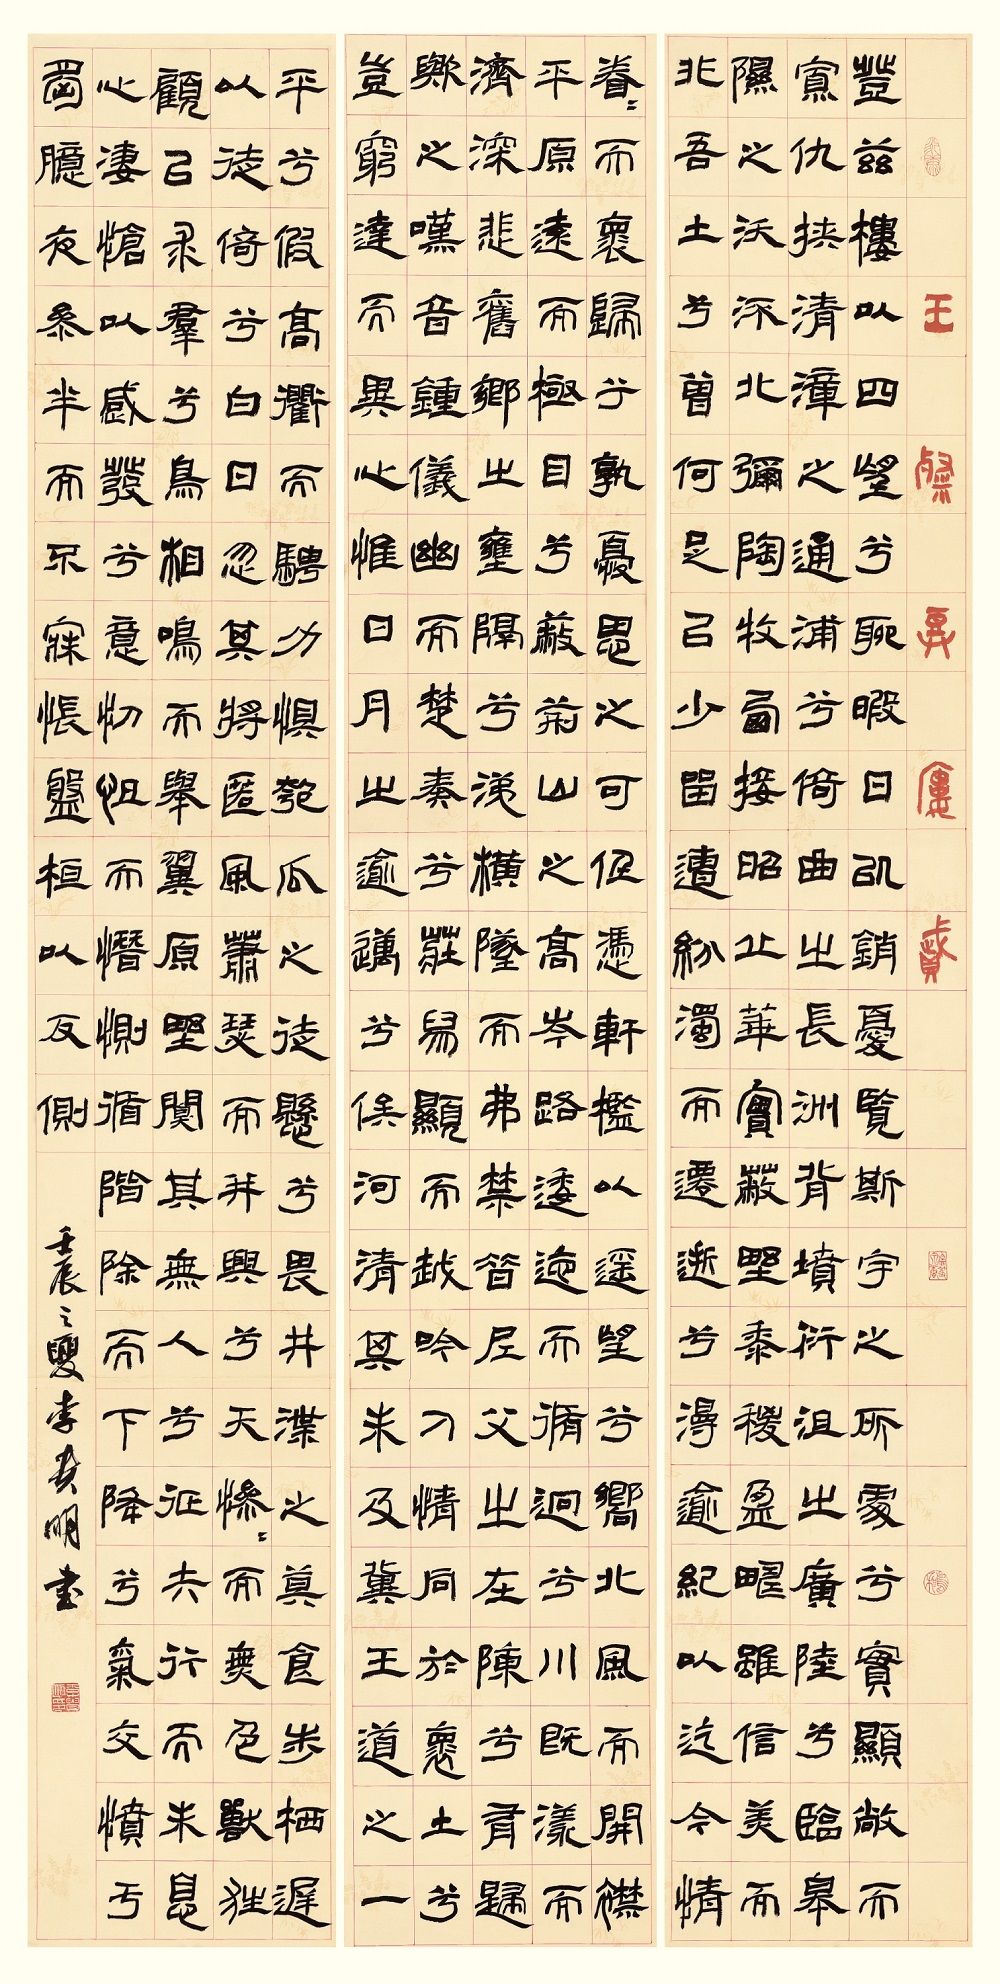 王粲登樓賦
登兹樓以四望兮聊暇日以銷憂覽斯宇之所處兮實顯敞而
寡仇挾清漳之通浦兮倚曲之長洲背墳衍沮之廣陸兮臨皋
隰之沃流北彌陶牧西接昭丘華實蔽野黍稷盈疇雖信美而
非吾土兮曾何足以少留遭紛濁而遷逝兮漫逾紀以迄今情
眷〻而懷歸兮孰憂思之可任憑軒檻以遥望兮嚮北風而開襟
平原遠而極目兮蔽荊山之高岑路逶迤而脩迥兮川既漾而
濟深悲舊鄉之壅隔兮涕橫墜而弗禁昔尼父之在陳兮有歸
歟之嘆音鍾儀幽而楚奏兮莊舄顯而越吟人情同於懷土兮
豈窮達而異心惟日月之逾邁兮俟河清其未及冀王道之一
平兮假高衢而騁力懼匏瓜之徒懸兮畏井渫之莫食步栖遲
以徙倚兮白日忽其將匿風蕭瑟而并興兮天慘〻而無色獸狂
顧以求羣兮鳥相鳴而舉翼原野闃其無人兮征夫行而未息
心悽愴以感發兮意忉怛而憯惻循階除而下降兮氣交憤于
胸臆夜參半而不寐悵盤桓以反側
壬辰之夏李貴明書